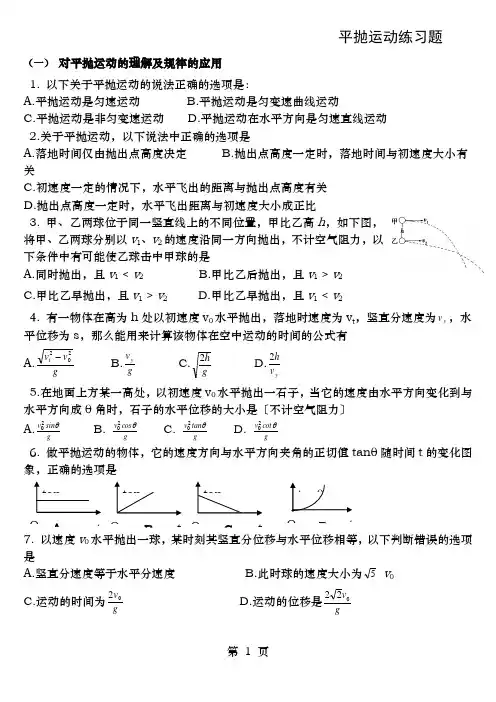 平抛运动练习题
（一） 对平抛运动的理解及规律的应用
1. 以下关于平抛运动的说法正确的选项是：
A.平抛运动是匀速运动 B.平抛运动是匀变速曲线运动
C.平抛运动是非匀变速运动 D.平抛运动在水平方向是匀速直线运动
2.关于平抛运动，以下说法中正确的选项是
A.落地时间仅由抛出点高度决定 B.抛出点高度一定时，落地时间与初速度大小有
关
C.初速度一定的情况下，水平飞出的距离与抛出点高度有关
D.抛出点高度一定时，水平飞出距离与初速度大小成正比
3. 甲、乙两球位于同一竖直线上的不同位置，甲比乙高 h，如下图，
将甲、乙两球分别以 v₁、v₂ 的速度沿同一方向抛出，不计空气阻力，以
下条件中有可能使乙球击中甲球的是
甲
乙
A.同时抛出，且 v₁ < v₂ B.甲比乙后抛出，且 v₁ > v₂
C.甲比乙早抛出，且 v₁ > v₂ D.甲比乙早抛出，且 v₁ < v₂
4. 有一物体在高为 h 处以初速度 v₀ 水平抛出，落地时速度为 vₜ，竖直分速度为 v_y，水
平位移为 s，那么能用来计算该物体在空中运动的时间的公式有
A. √(vₜ²−v₀²)/g B. v_y/g C. √(2h/g) D. 2h/v_y
5.在地面上方某一高处，以初速度 v₀ 水平抛出一石子，当它的速度由水平方向变化到与
水平方向成 θ 角时，石子的水平位移的大小是〔不计空气阻力〕
A. v₀²sinθ/g B. v₀²cosθ/g C. v₀²tanθ/g D. v₀²cotθ/g
6. 做平抛运动的物体，它的速度方向与水平方向夹角的正切值 tanθ 随时间 t 的变化图
象，正确的选项是
7. 以速度 v₀ 水平抛出一球，某时刻其竖直分位移与水平位移相等，以下判断错误的选项
是
A.竖直分速度等于水平分速度 B.此时球的速度大小为 √5 v₀
C.运动的时间为 2v₀/g D.运动的位移是 2√2v₀/g
第 1 页